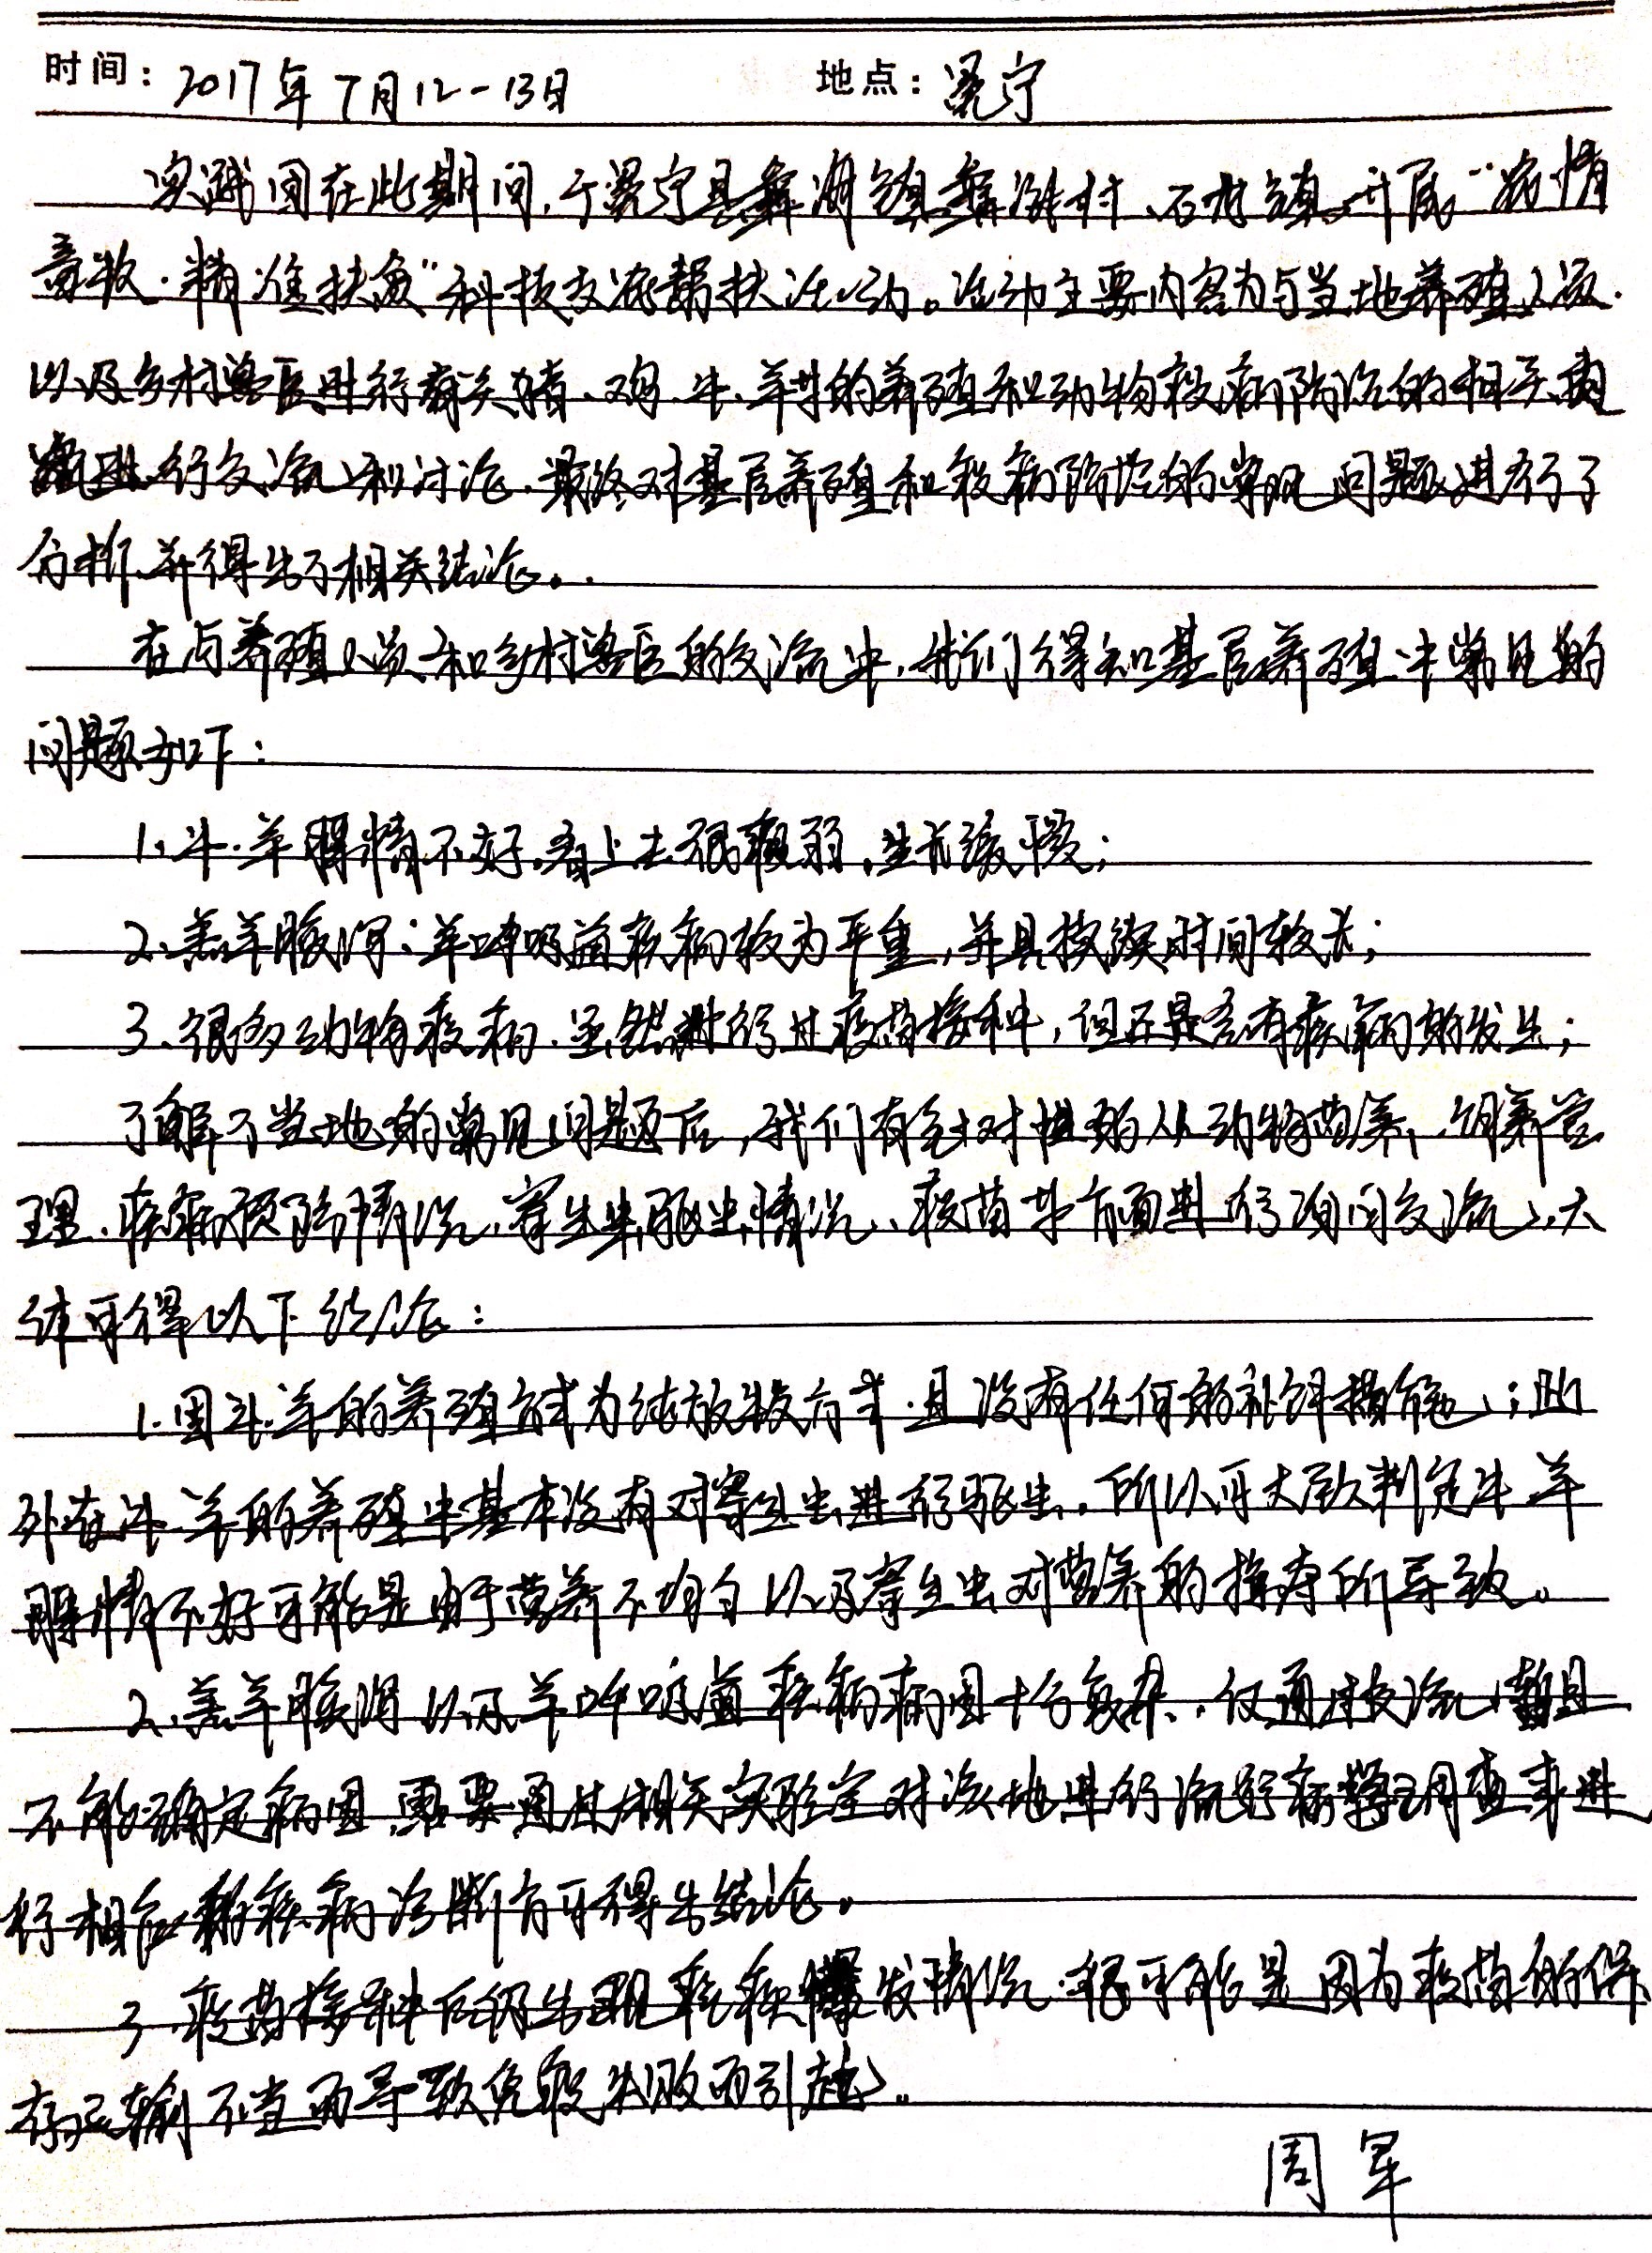 时间：2017年7月12-13日 地点：冕宁
实践团在此期间，于冕宁县彝海镇彝海村、石龙镇开展“农情
畜牧·精准扶贫”科技支农帮扶活动。活动主要内容为与当地养殖人员
以及乡村兽医进行有关猪、鸡、牛、羊等的养殖和动物疫病防治的相关内
进行交流和讨论，最终对基层养殖和疫病防控的常见问题进行了
分析，并得出了相关结论。
在与养殖人员和乡村兽医的交流中，我们得知基层养殖中常见的
问题如下：
1、牛、羊膘情不好，看上去很瘦弱，生长缓慢；
2、羔羊腹泻；羊呼吸道疾病较为严重，并且持续时间较长；
3、很多动物疫病，虽然进行过疫苗接种，但还是会有疾病的发生；
了解了当地的常见问题后，我们有针对性的从动物营养、饲养管
理、疾病预防情况、寄生虫驱虫情况、疫苗等方面进行询问交流，大
体可得以下结论：
1.因牛、羊的养殖方式为纯放牧方式，且没有任何的补饲措施；此
外在牛、羊的养殖中基本没有对寄生虫进行驱虫，所以可大致判定牛、羊
膘情不好可能是由于营养不均匀以及寄生虫对营养的掠夺所导致。
2、羔羊腹泻以及羊呼吸道疾病病因十分复杂，仅通过交流暂且
不能确定病因，需要通过相关实验室对该地进行流行病学调查来进
行相应的疾病诊断方可得出结论。
3、疫苗接种后仍出现疾病爆发情况，很可能是因为疫苗的保
存运输不当而导致免疫失败而引起。
周军